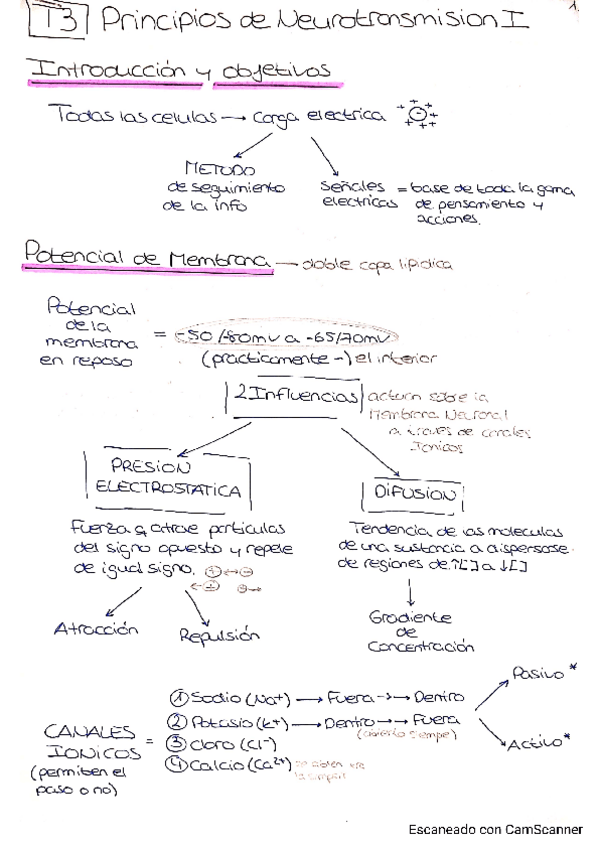 T3 Principios de Neurotransmision I
1.
Introducción y objetivos
Todas las celulas → carga electrica
METODO
de seguimiento
de la info
señales = base de toda la gama
electricas de pensamiento y
acciones.
Potencial de Membrana — doble capa lipidica
Potencial
de la
membrana
en reposo
= -50/-80mv a -65/70mv
(practicamente -) el interior
2 Influencias
actuan sobre la
Membrana Neuronal
a traves de canales
Ionicos
PRESION
ELECTROSTATICA
DIFUSION
Fuerza q atrae particulas
del signo opuesto y repele
de igual signo.
Tendencia de las moleculas
de una sustancia a dispersarse
de regiones de ↑[] a ↓[]
Atracción
Repulsión
Gradiente
de
Concentración
CANALES
IONICOS =
(permiten el
paso o no)
① Sodio (Na+) → Fuera → Dentro
② Potasio (K+) → Dentro → Fuera
(abierto siempre)
③ Cloro (Cl-)
④ Calcio (Ca2+) se abren
Pasivo *
Activo *
Escaneado con CamScanner